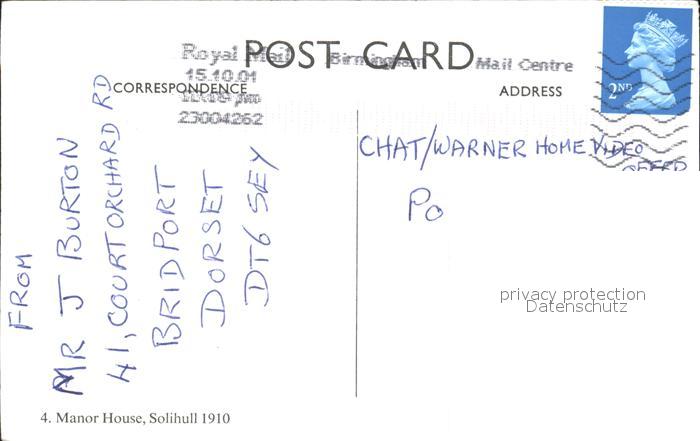 POST CARD
Royal Mail
Birmingham
Mail Centre
15.10.01
23004262
CORRESPONDENCE
ADDRESS
2ND
CHAT/WARNER HOME VIDEO
OFFER
PO
FROM
MR J BURTON
41, COURTORCHARD RD
BRIDPORT
DORSET
DT6 5EY
privacy protection
Datenschutz
4. Manor House, Solihull 1910